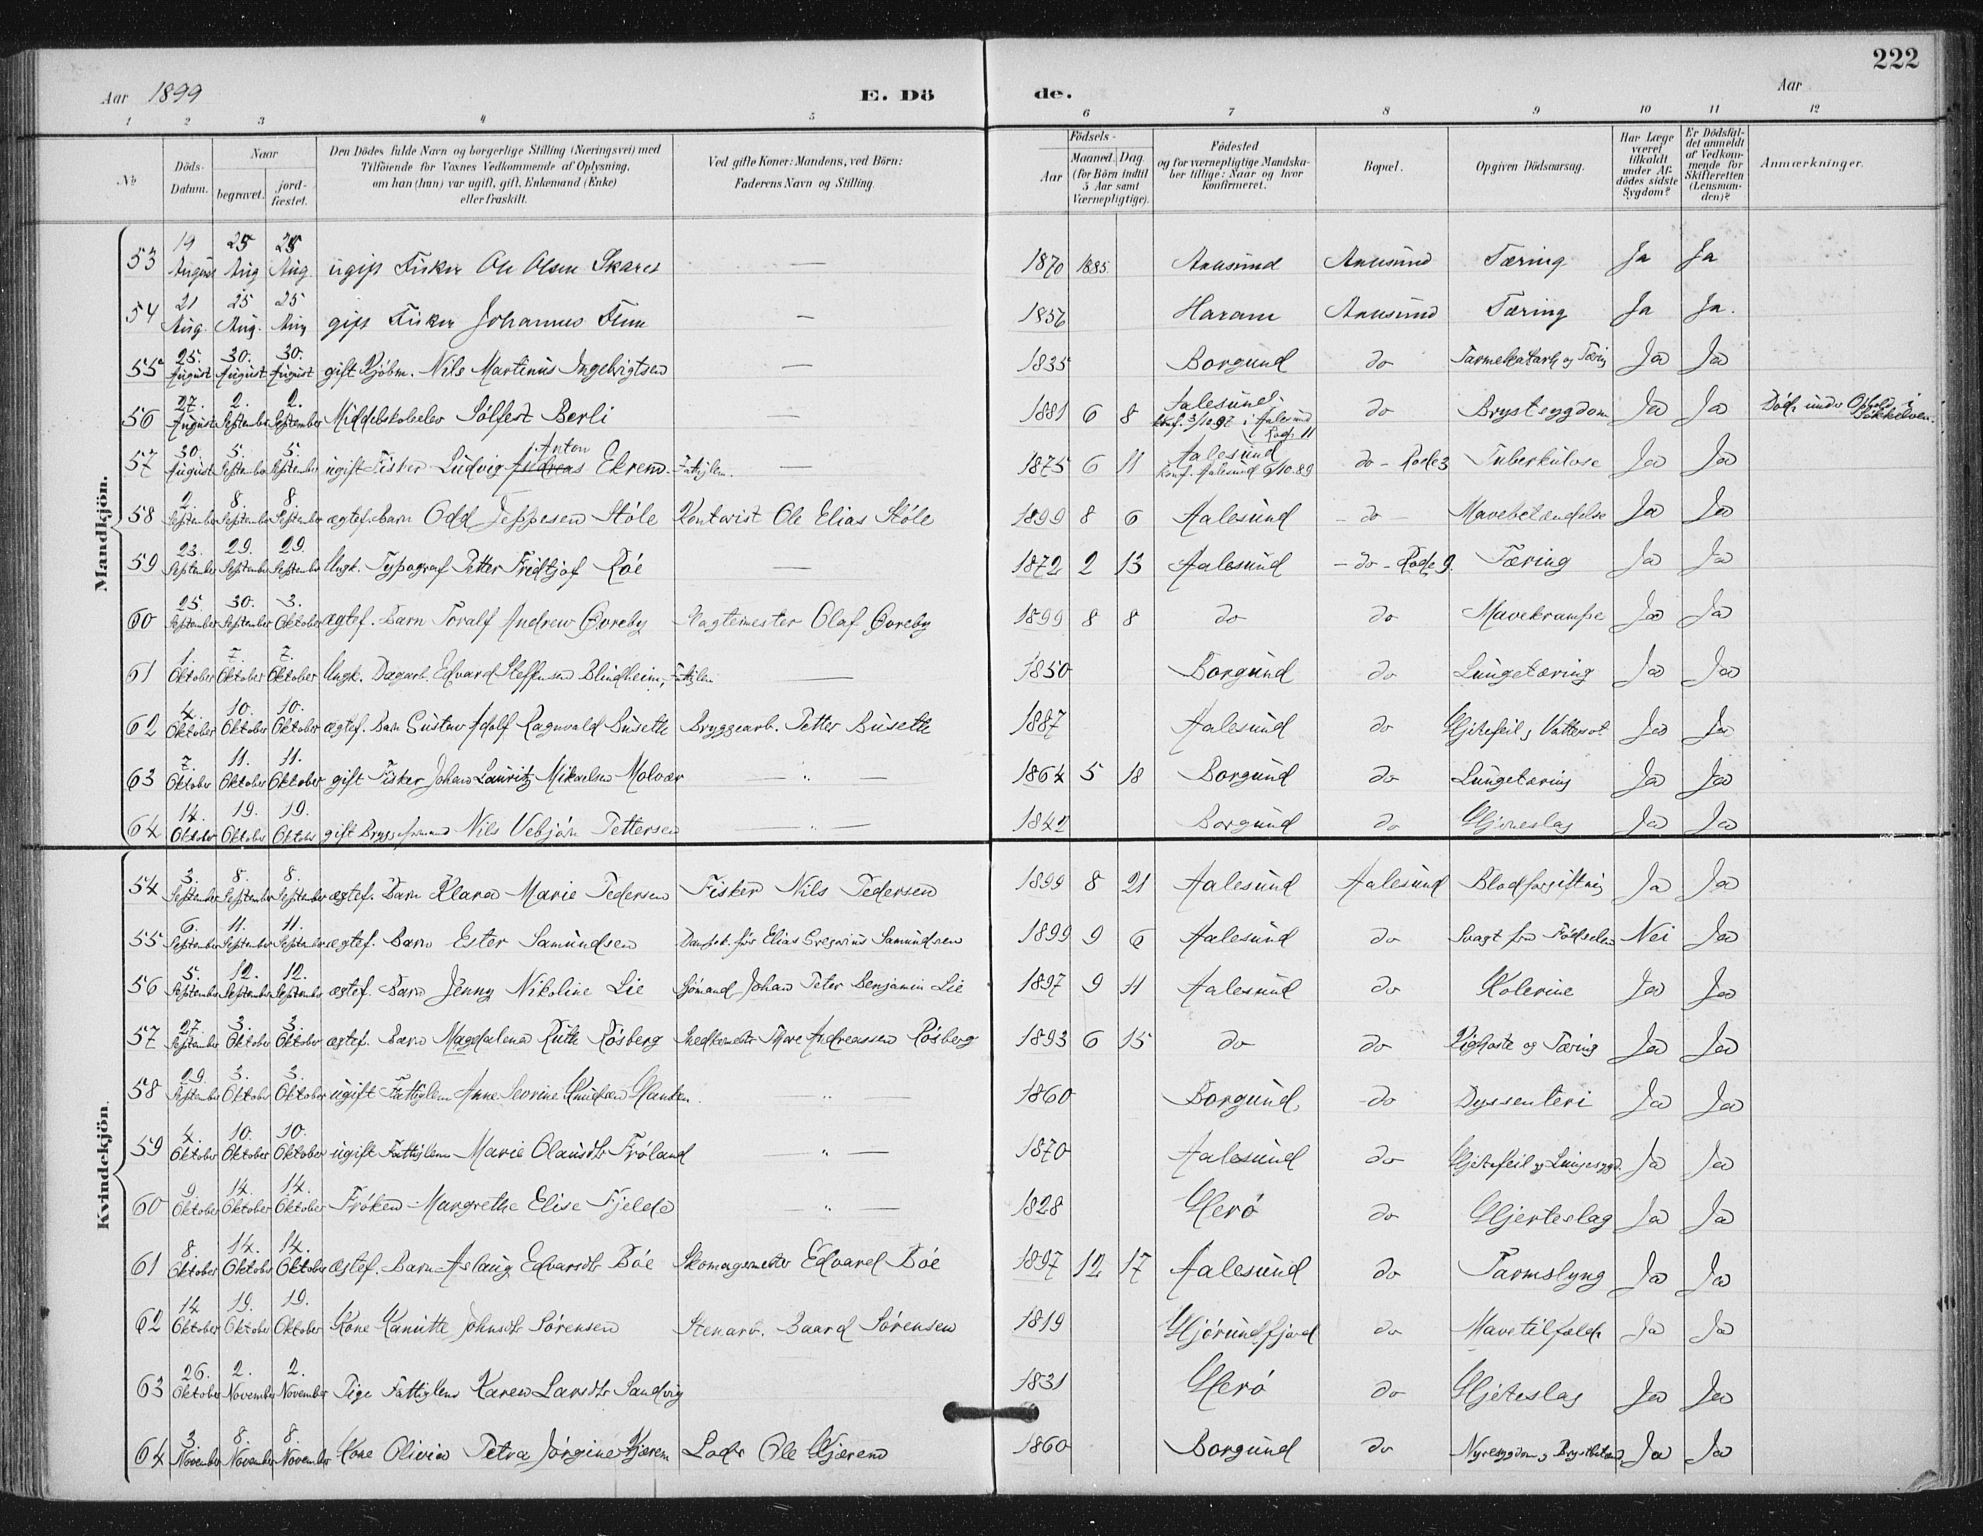 222
Aar 1899 E. Dö de. Aar
1 2 3 4 5 6 7 8 9 10 11 12
№
Döds-Datum.
Naar
begravet.
jord-fæstet.
Den Dödes fulde Navn og borgerlige Stilling (Næringsvei) med
Tilföiende for Voxnes Vedkommende af Oplysning,
om han (hun) var ugift, gift, Enkemand (Enke)
eller fraskilt.
Ved gifte Koner: Mandens, ved Börn:
Faderens Navn og Stilling.
Födsels-
Aar
Maaned. Dag.
(for Börn indtil
5 Aar samt
Værnepligtige).
Födested
og for værnepligtige Mandska-
ber tillige: Naar og hvor
konfirmeret.
Bopæl.
Opgiven Dödsaarsag.
Har Læge
været
tilkaldt
under Af-
dödes sidste
Sygdom?
Er Dödsfal-
det anmeldt
af Vedkom-
mende for
Skifteretten
(Lensman-
den)?
Anmærkninger.
Mandkjön.
53 19 August 25 Aug 25 Aug. ugift Fisker Ole Olsen Skaret — 1870 1885 Aalesund Aalesund Tæring Ja Ja
54 21 Aug. 25 Aug. 25 Aug gift Fisker Johannes — 1856 Haram Aalesund Tæring Ja Ja.
55 25. August 30. August 30. August gift Kjøbm. Nils Martinus Ingebrigtsen — 1835 Borgund do Tarmekatarh og Ja Ja
56 27. August 2. September 2. September Middelskoleelev Sölfest Berli — 1881 6 8 Aalesund. Konf. i Aalesund do Brystsygdom Ja Ja Död under Ophold i Søkkelven.
57 30. August 5. September 5. September ugift Fisker Ludvig Anton Ekrem. Fattiglem. — 1875 6 11 Aalesund Konf. Aalesund 6/10.89 do - Rode 3 Tuberkulose Ja Ja
58 2. September 8. September 8. September ægtef. Barn Odd Jeppesen Støle Kontorist Ole Elias Støle 1899 8 6 Aalesund - do - Mavebetændelse Ja Ja
59 23. September 29. September 29. September Ungk. Typograf Petter Fredtjof Röe — 1872 2 13 Aalesund - do - Rode 9. Tæring Ja Ja
60 25. September 30. September 3. Oktober ægtef. Barn Toralf Andrew Øvreby Vagtmester Olaf Øvreby 1899 8 8 do do Mavekrampe Ja Ja
61 1. Oktober 7. Oktober 7. Oktober Ungk. Dagarb. Edvard Steffensen Blindheim, Fattiglem — 1850 Borgund do Lungetæring Ja Ja
62 4. Oktober 10. Oktober 10. Oktober ægtef. Barn Gustav Adolf Ragnvald Buseth Bryggearb. Petter Buseth 1887 Aalesund do Hjertefeil, Vattersot Ja Ja
63 7. Oktober 11. Oktober 11. Oktober gift Fisker Johan Lauritz Mikaelsen Molvær — " — 1864 5 18 Borgund do Lungetæring Ja Ja
64 14. Oktober 19. Oktober 19. Oktober gift Bryggeformand Nils Vebjørn Pettersen — " — 1842 Borgund do Hjerneslag Ja Ja
Kvindekjön.
54 3. September 8. September 8. September ægtef. Barn Klara Marie Pedersen Fisker Nils Pedersen 1899 8 21 Aalesund Aalesund Blodforgiftning Ja Ja
55 6. September 11. September 11. September ægtef. Barn Ester Samundsen Elias Gregorius Samundsen 1899 9 6 Aalesund do Svagt fra Fødselen Nei Ja
56 5. September 12. September 12. September ægtef. Barn Jenny Nikoline Lie Sjömand Johan Peter Benjamin Lie 1897 9 11 Aalesund do Kolerine Ja Ja
57 27. September 3. Oktober 3. Oktober ægtef. Barn Magdalena Ruth Røsberg Snedkermester Andreassen Røsberg 1893 6 15 do do Kighoste og Tæring Ja Ja
58 29. September 3. Oktober 3. Oktober ugift Fattiglem Anne Severine Knudsen Hanken. — " — 1860 Borgund. do Dyssenteri Ja Ja
59 4. Oktober 10. Oktober 10. Oktober ugift Fattiglem Marie Olausdtr Frøland — " — 1870 Aalesund do Hjertefeil og Lungesygd. Ja Ja
60 9. Oktober 14. Oktober 14. Oktober Frøken Margrethe Elise Fjelde — " — 1828 Herø do Hjerteslag Ja Ja
61 8. Oktober 14. Oktober 14. Oktober ægtef. Barn Aslaug Edvardsdtr Böe Skomagermester Edvard Böe 1897 12 17 Aalesund do Tarmslyng Ja Ja
62 14. Oktober 19. Oktober 19. Oktober Kone Kanutte Johnsdtr Sørensen Stenarb. Baard Sørensen 1819 Hjørundfjord do Mavetilfælde Ja Ja
63 26. Oktober 2. November 2. November Pige Fattiglem Karen Larsdtr Sandvig 1831 Herø do Hjerteslag Ja Ja
64 3. November 8. November 8. November Kone Olivia Petra Jørgine Hjærem Lods Ole Hjærem 1860 Borgund do Nyresygdom, Brystbetænd. Ja Ja